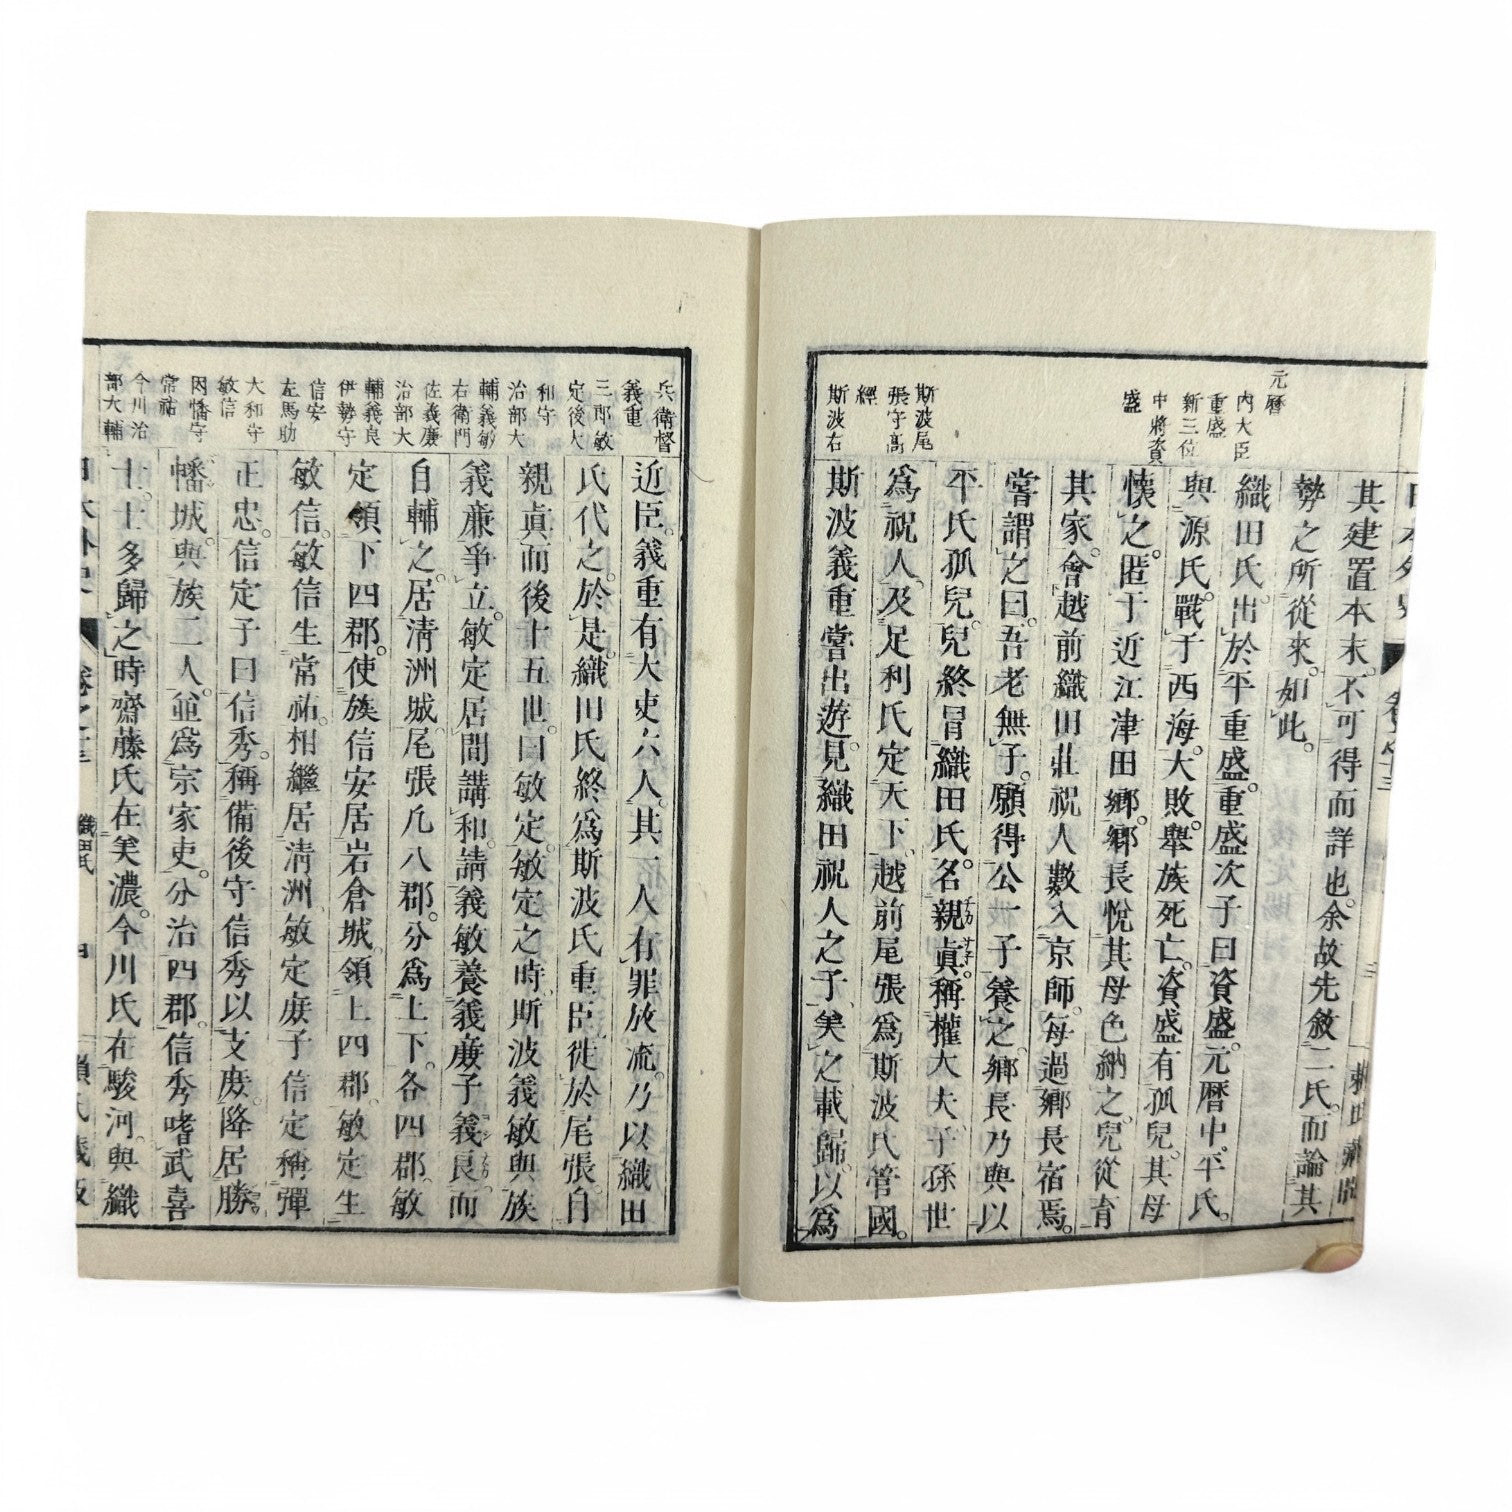 元暦
内大臣
重盛
新三位
中將資
盛
斯波尾
張守高
經
斯波右
其建置本末。不可得而詳也。余故先敘二氏。而論其
勢之所從來。如此。
織田氏。出於平重盛。重盛次子曰資盛。元暦中。平氏
與源氏戰于西海。大敗。舉族死亡。資盛有孤兒。其母
懷之。匿于近江津田鄉。鄉長悅其母色納之。兒從育
其家。會越前織田莊祝人數入京師。每過鄉長宿焉。
嘗謂之曰。吾老無子。願得公一子養之。鄉長乃與以
平氏孤兒。兒終冒織田氏。名親眞。稱權大夫。子孫世
爲祝人。及足利氏定天下。越前尾張爲斯波氏管國。
斯波義重嘗出遊。見織田祝人之子。美之載歸。以爲
兵衛督
義重
三郎敏
定後大
和守
治部大
輔義敏
右衛門
佐義廉
治部大
輔義良
伊勢守
信安
左馬助
大和守
敏信
因幡守
常祐
今川治
部大輔
近臣。義重有大吏六人。其一人有罪放流。乃以織田
氏代之。於是織田氏終爲斯波氏重臣。徙於尾張。自
親眞而後十五世。曰敏定。敏定之時。斯波義敏與族
義廉爭立。敏定居間講和。請義敏養義廉子義良而
自輔之。居淸洲城。尾張凡八郡。分爲上下。各四郡。敏
定領下四郡。使族信安居岩倉城。領上四郡。敏定生
敏信。敏信生常祐。相繼居淸洲。敏定庶子信定稱彈
正忠。信定子曰信秀。稱備後守。信秀以支庶。降居勝
幡城。與族二人。並爲宗家吏。分治四郡。信秀嗜武喜
士。士多歸之。時齋藤氏在美濃。今川氏在駿河。與織
日本外史 卷之十三 織田氏 四 賴氏藏版